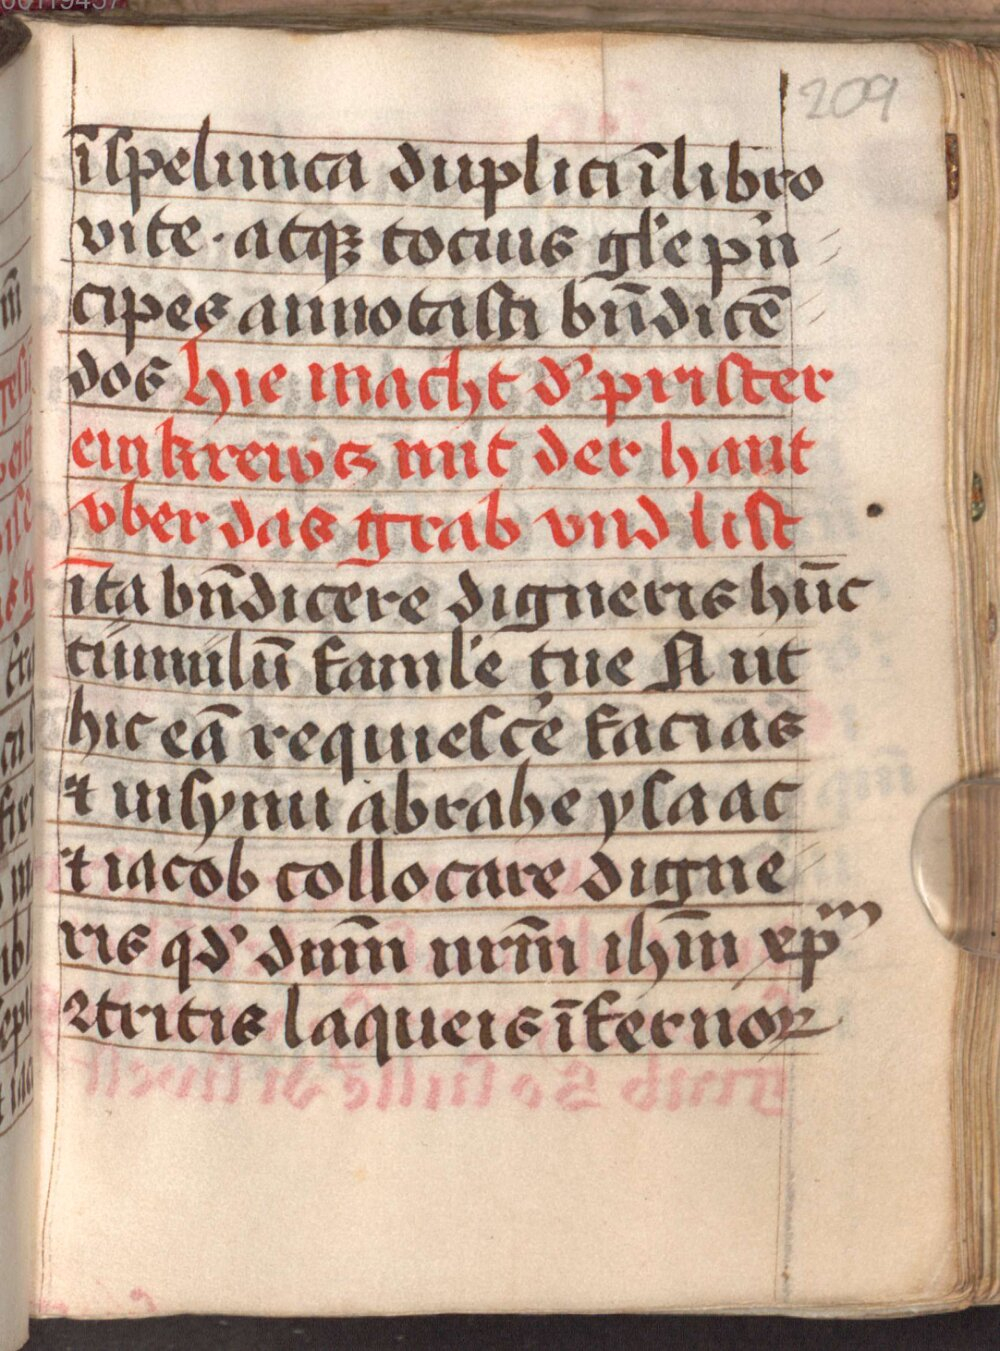 209
ī spelunca duplici ī libro
vite · atqꝫ tocius gl̄e pͥn
cipes annotasti bn̄dicē
dos hie macht dʼ prister
ein krewtz mit der hant
vber das grab vnd list
Ita bn̄dicere digneris hūc
tumulū famul̄e tue N ut
hic eā requiescʼe facias
⁊ in synu abrahe ysaac
⁊ iacob collocare digne
ris qdʼ dnm̄ nrm̄ ihm̄ xp̄m
ꝯtritis laqueis īfernoꝝ